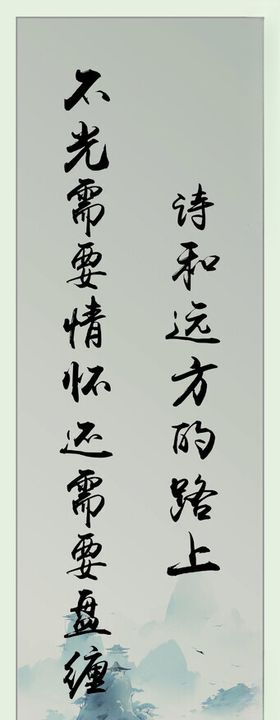 诗和远方的路上
不光需要情怀还需要盘缠